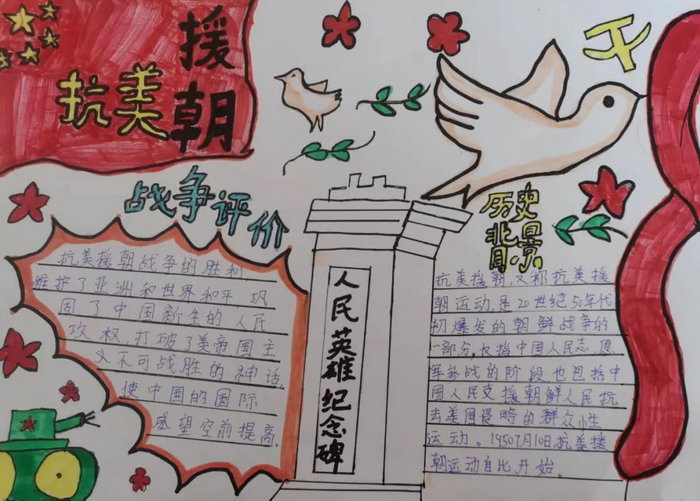 抗美
援朝
战争评价
抗美援朝战争的胜利
维护了亚洲和世界和平,巩
固了中国新生的人民
政权,打破了美帝国主
义不可战胜的神话,
使中国的国际
威望空前提高.
人民英雄纪念碑
历史
背景
抗美援朝,又称抗美援
朝运动,是20世纪50年代
初爆发的朝鲜战争的
一部分,仅指中国人民志愿
军参战的阶段也包括中
国人民支援朝鲜人民抗
击美国侵略的群众性
运动。1950 7月10日抗美援
朝运动自此开始.